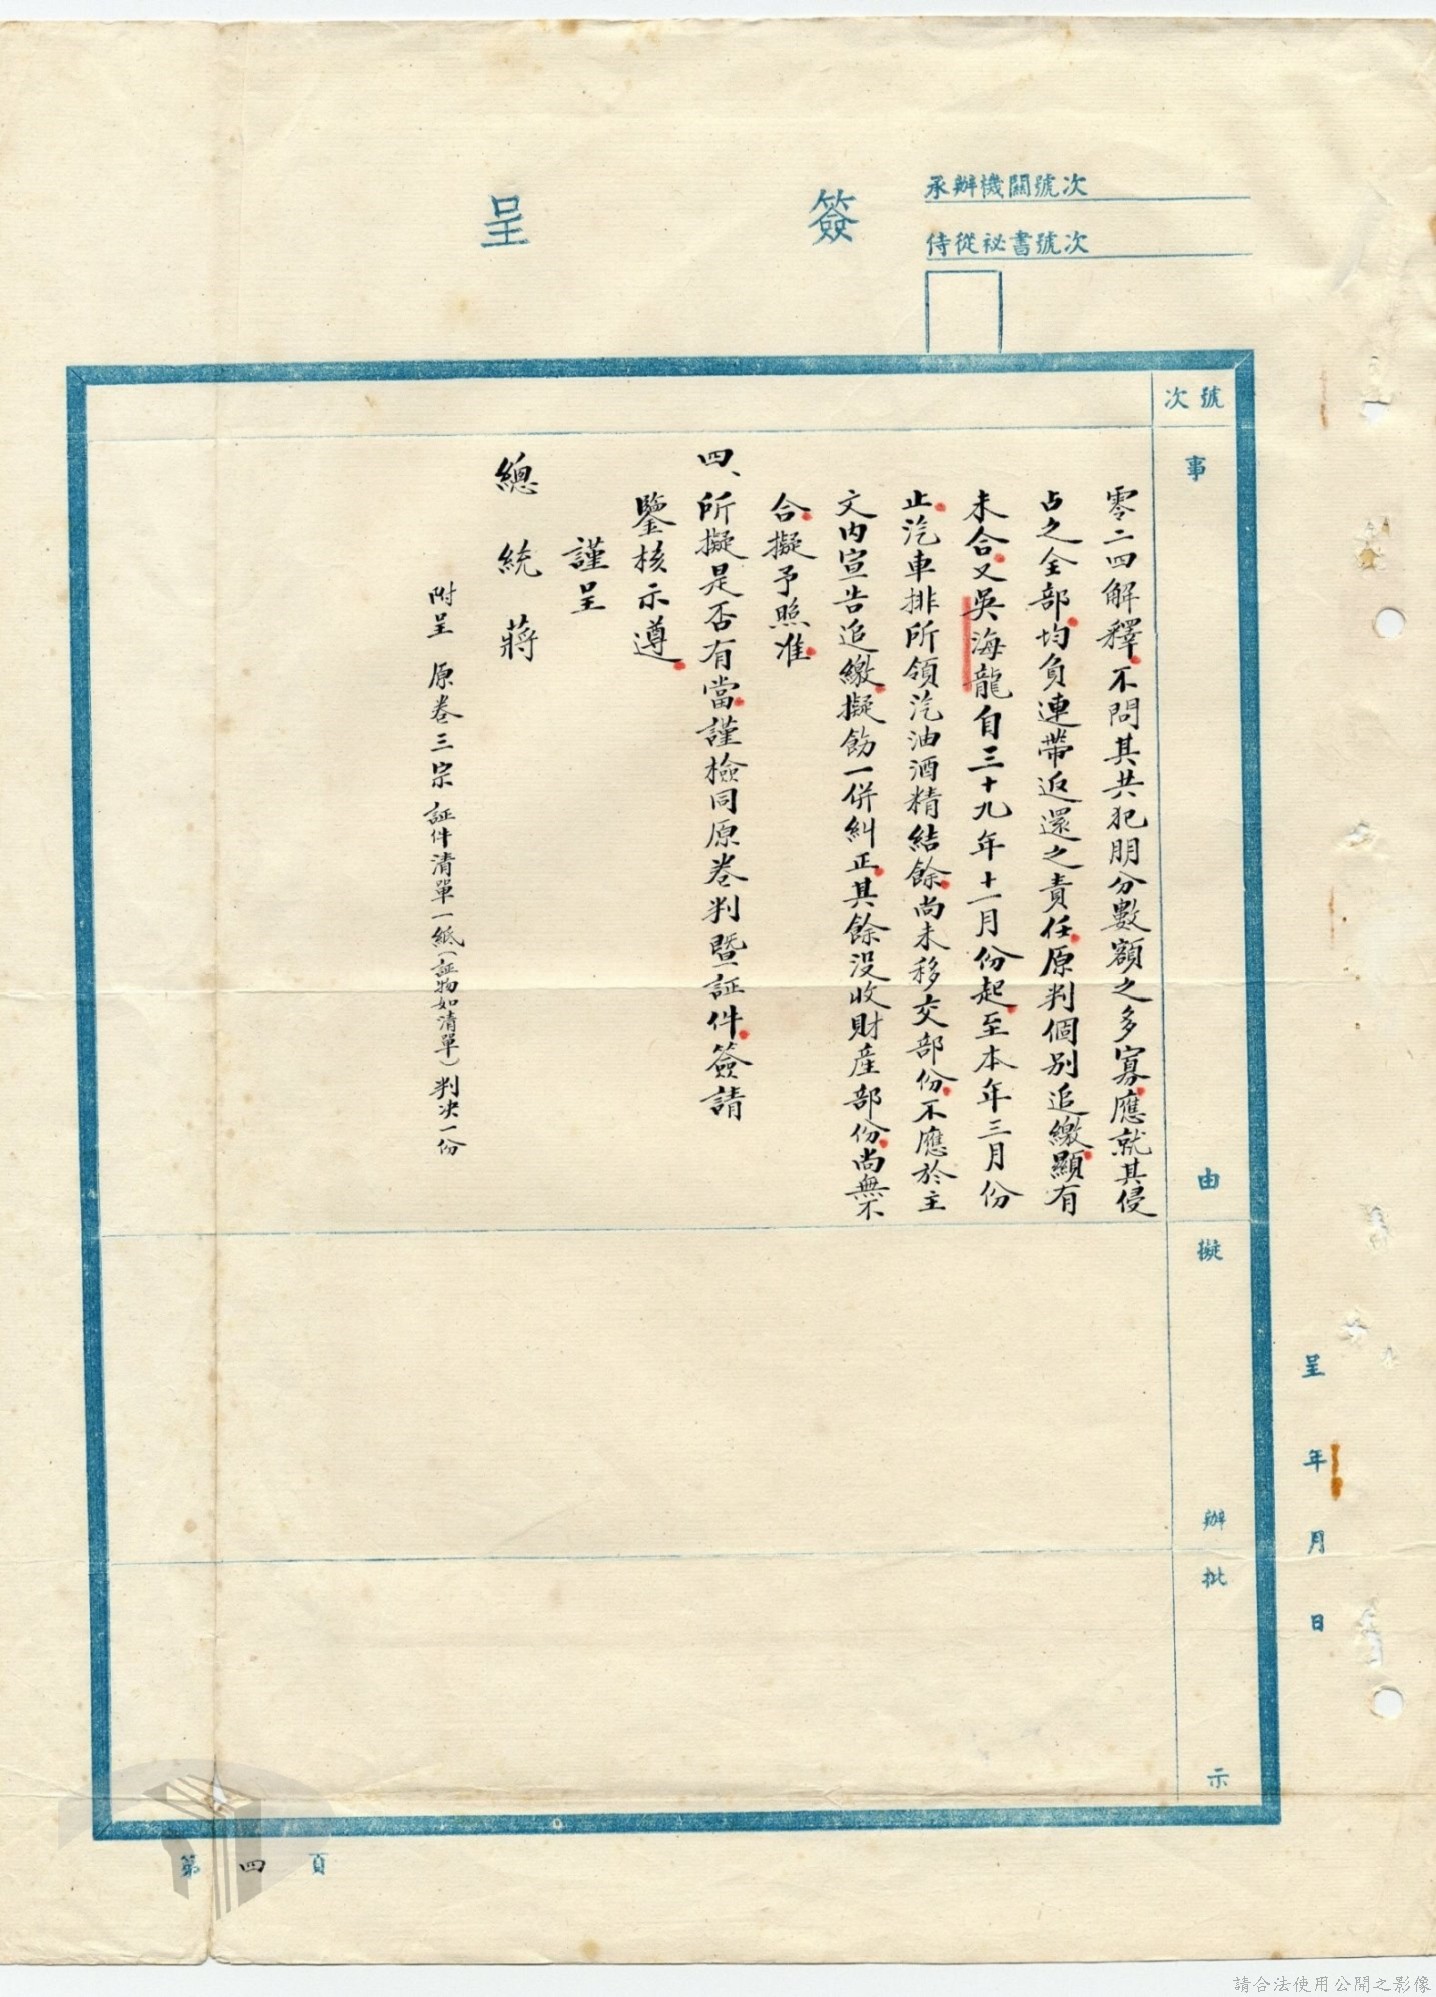 簽呈
承辦機關號次
侍從祕書號次
號次
事由
擬辦
批示
呈 年 月 日
零二四解釋不問其共犯朋分數額之多寡應就其侵
占之全部均負連帶返還之責任原判個別追繳顯有
未合又吳海龍自三十九年十一月份起至本年三月份
止汽車排所領汽油酒精結餘尚未移交部份不應於主
文內宣告追繳擬飭一併糾正其餘沒收財產部份尚無不
合擬予照准
四、所擬是否有當謹檢同原卷判暨証件簽請
鑒核示遵
謹呈
總統蔣
附呈 原卷三宗 証件清單一紙(証物如清單) 判決一份
第四頁
請合法使用公開之影像